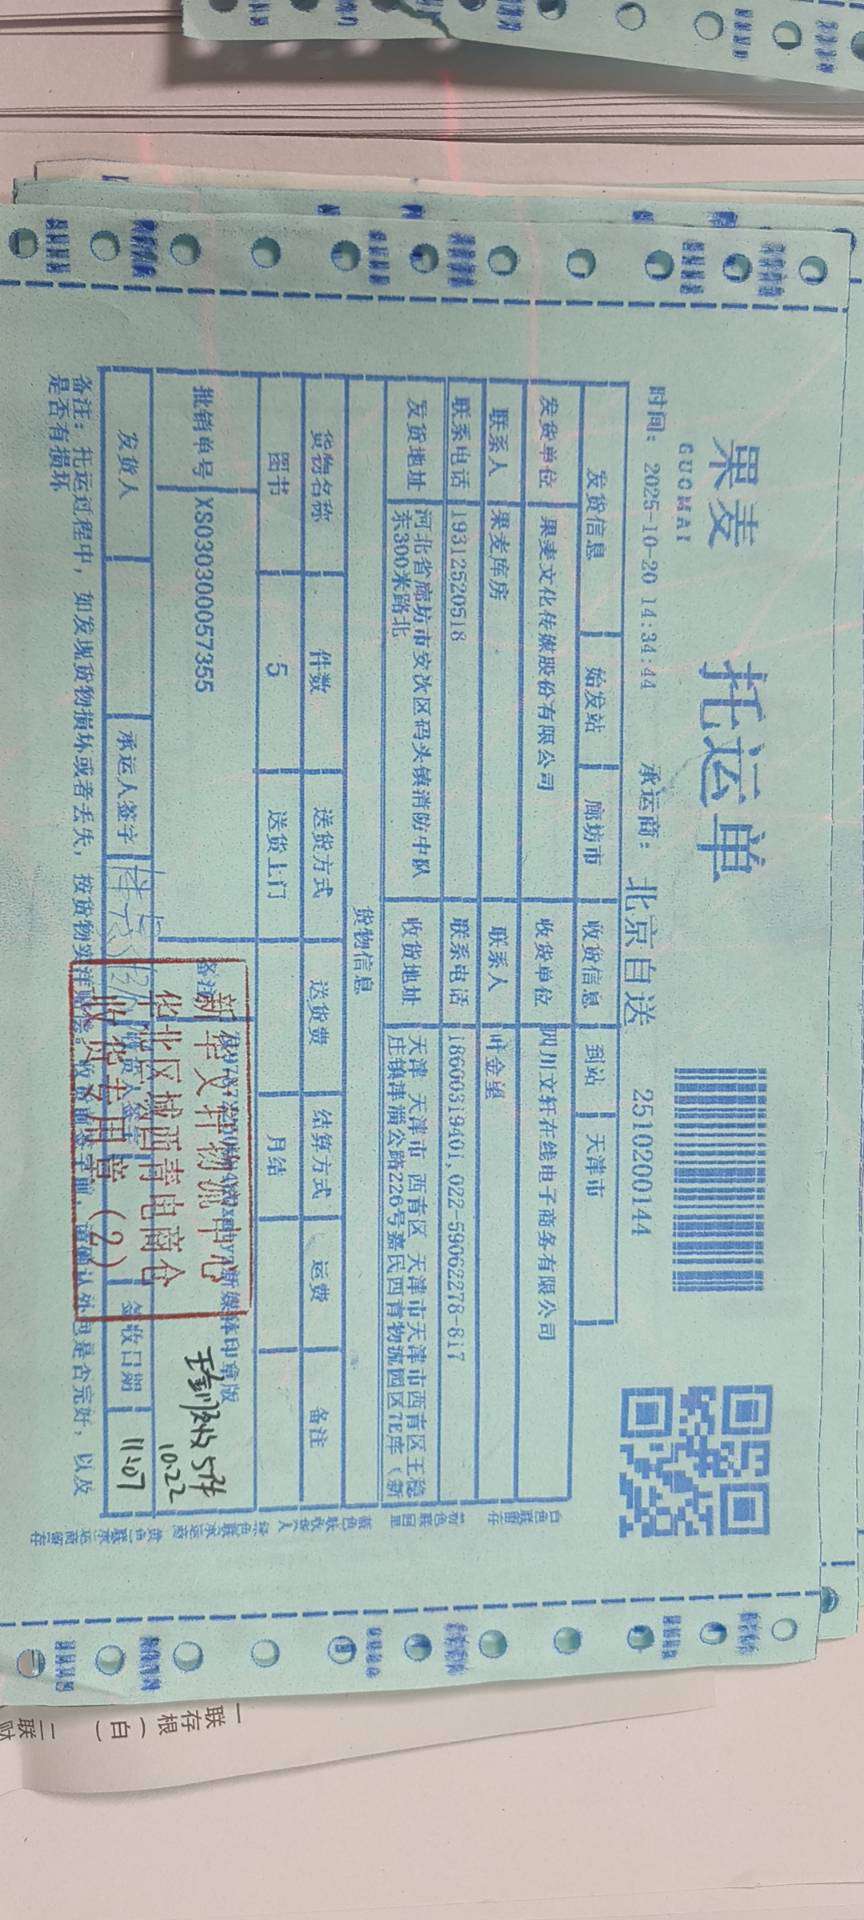 果麦
GUOMAI
托运单
时间: 2025-10-20 14:34:44 承运商: 北京自送 2510200144
发货信息 始发站 廊坊市 收货信息 到站 天津市
发货单位 果麦文化传媒股份有限公司 收货单位 四川文轩在线电子商务有限公司
联系人 果麦库房 联系人 叶金望
联系电话 19312520518 联系电话 18600319401,022-59062278-817
发货地址 河北省廊坊市安次区码头镇消防中队东300米路北 收货地址 天津 天津市 西青区 天津市天津市西青区王稳庄镇津淄公路226号嘉民西青物流园区7E库(新
货物信息
货物名称 件数 送货方式 送货费 结算方式 运费 备注
图书 5 送货上门 月结
批销单号 XS030300057355 备注 新媒体印章版
新华文轩物流中心
华北区域西青电商仓
收货专用章(2)
实收5件
10.22
发货人 承运人签字 签收日期 11:07
备注: 托运过程中,如发现货物损坏或者丢失,按货物实 确认外包是否完好,以及
是否有损坏
白色联留存
联
存
根
(白)
一
联
财